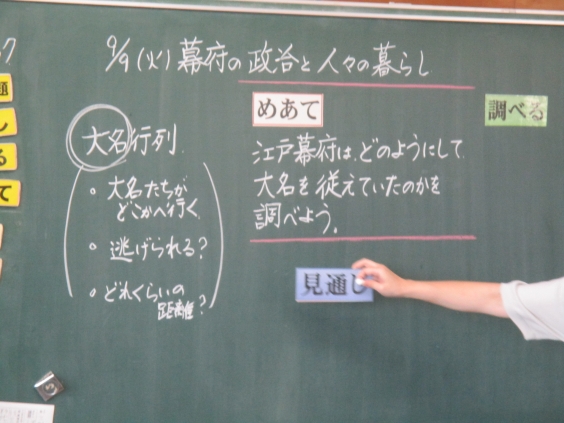 9/9(火)幕府の政治と人々の暮らし
大名行列
・大名たちが
どこかへ行く
・逃げられる?
・どれくらいの
距離?
めあて
江戸幕府は、どのようにして、
大名を従えていたのかを
調べよう。
見通し
調べる
題
し
る
て